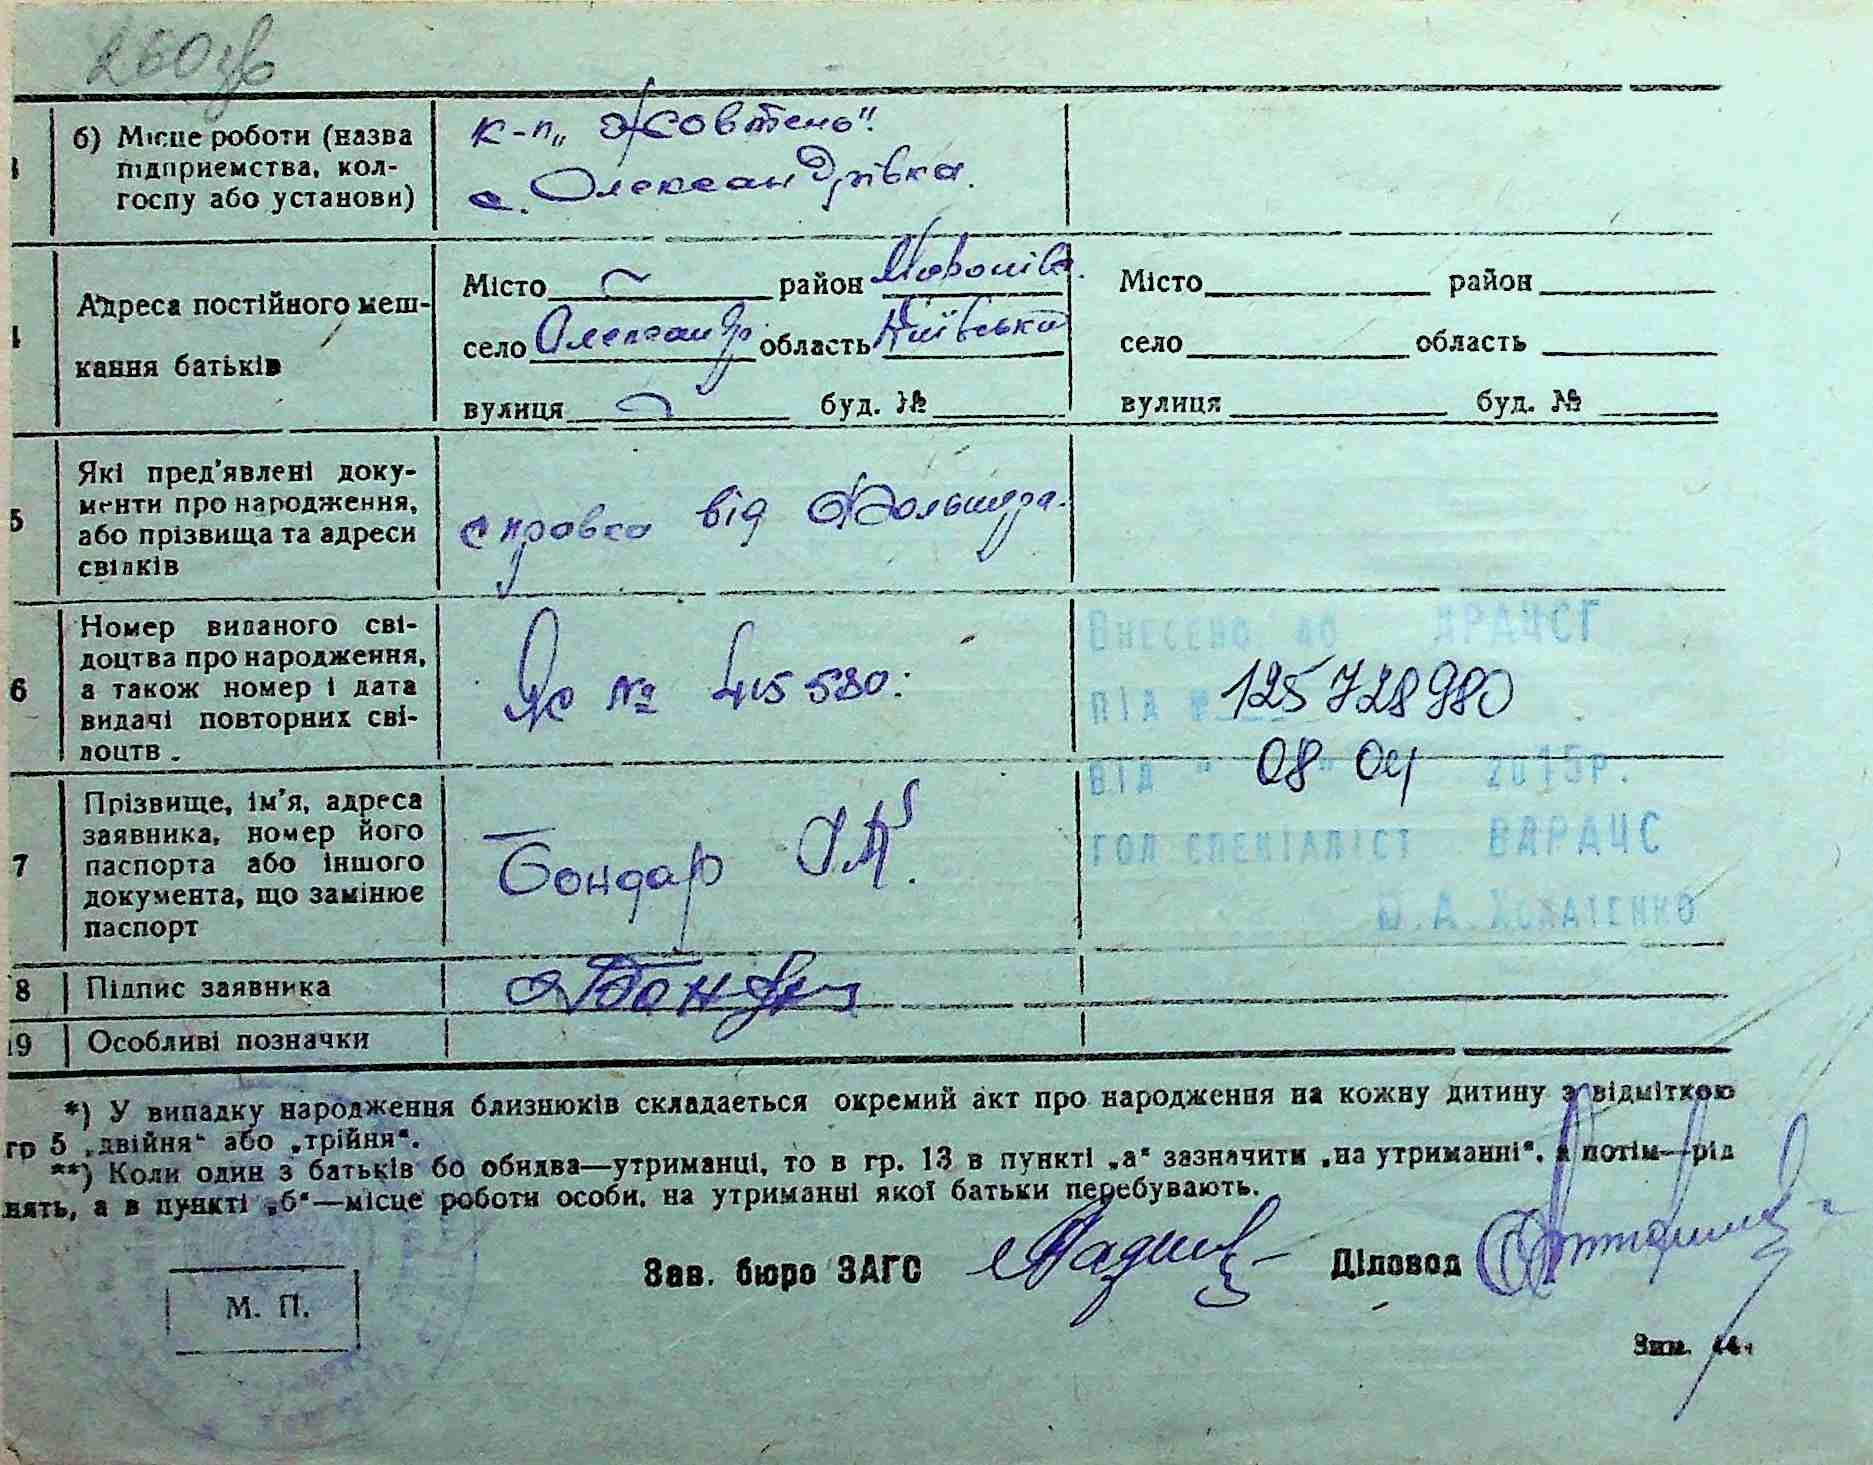 260зв
б) Місце роботи (назва
підприемства, кол-
госпу або установи)
к-п „Жовтень".
с. Олександрівка.
Адреса постійного меш-
кання батьків
Місто район
село Олександр. область Київська
вулиця буд. №
Місто район
село область
вулиця буд. №
5
Які пред'явлені доку-
менти про народження,
або прізвища та адреси
свідків
справка від
6
Номер виданого сві-
доцтва про народження,
а також номер і дата
видачі повторних сві-
доцтв .
№ 415530.
Внесено до ДРАЦСГ
під № 125728980
від " 08 " 04 2015р.
гол спеціаліст ВДРАЦС
Ю.А.
7
Прізвище, ім'я, адреса
заявника, номер його
паспорта або іншого
документа, що замінює
паспорт
Бондар
8
Підпис заявника
19
Особливі позначки
*) У випадку народження близнюків складаеться окремий акт про народження на кожну дитину з відміткою
гр 5 „двійня" або „трійня".
**) Коли один з батьків бо обидва—утриманці, то в гр. 13 в пункті „а" зазначити „на утриманні", а потім—рід
нять, а в пункті „б"—місце роботи особи, на утриманні якої батьки перебувають.
Зав. бюро ЗАГС
Діловод
М. П.